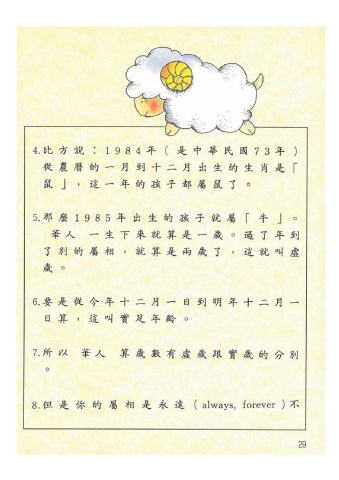 4.比方說：1984年（是中華民國73年）
從農曆的一月到十二月出生的生肖是「
鼠」，這一年的孩子都屬鼠了。
5.那麼1985年出生的孩子就屬「牛」。
華人 一生下來就算是一歲。過了年到
了別的屬相，就算是兩歲了，這就叫虛
歲。
6.要是從今年十二月一日到明年十二月一
日算，這叫實足年齡。
7.所以 華人 算歲數有虛歲跟實歲的分別
。
8.但是你的屬相是永遠（always, forever）不
29